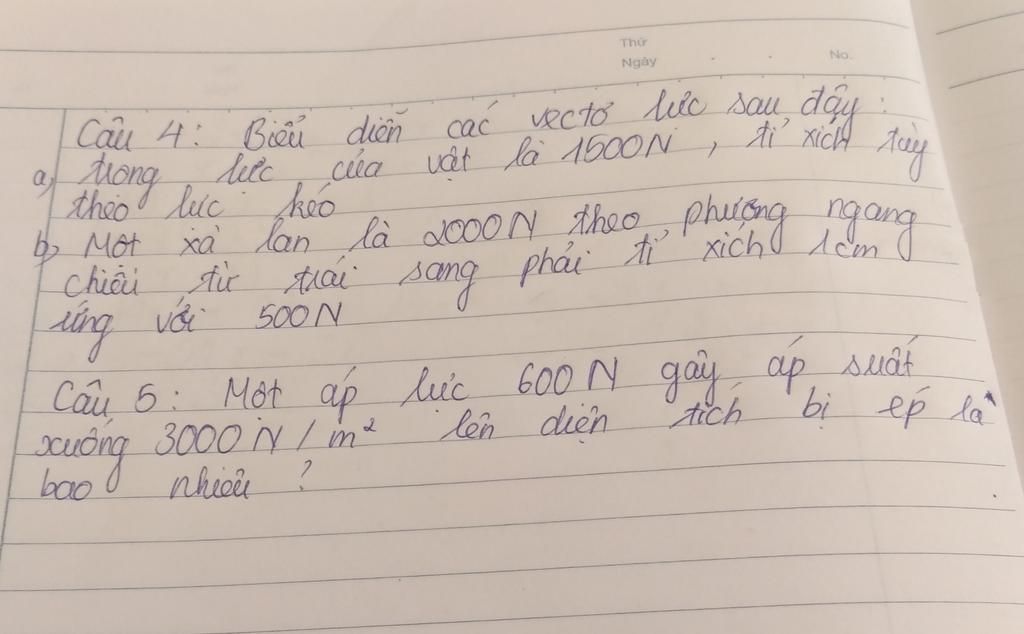 Thứ
Ngày
No.
Câu 4: Biểu diễn các vectơ lực sau đây:
a, trọng lực của vật là 1500N, tỉ xích tùy
theo lực kéo
b, Một xà lan là 2000N theo phương ngang
chiều từ trái sang phải tỉ xích 1cm
ứng với 500N
Câu 5: Một áp lực 600N gây áp suất
xuống 3000N/m² lên diện tích bị ép là
bao nhiêu?